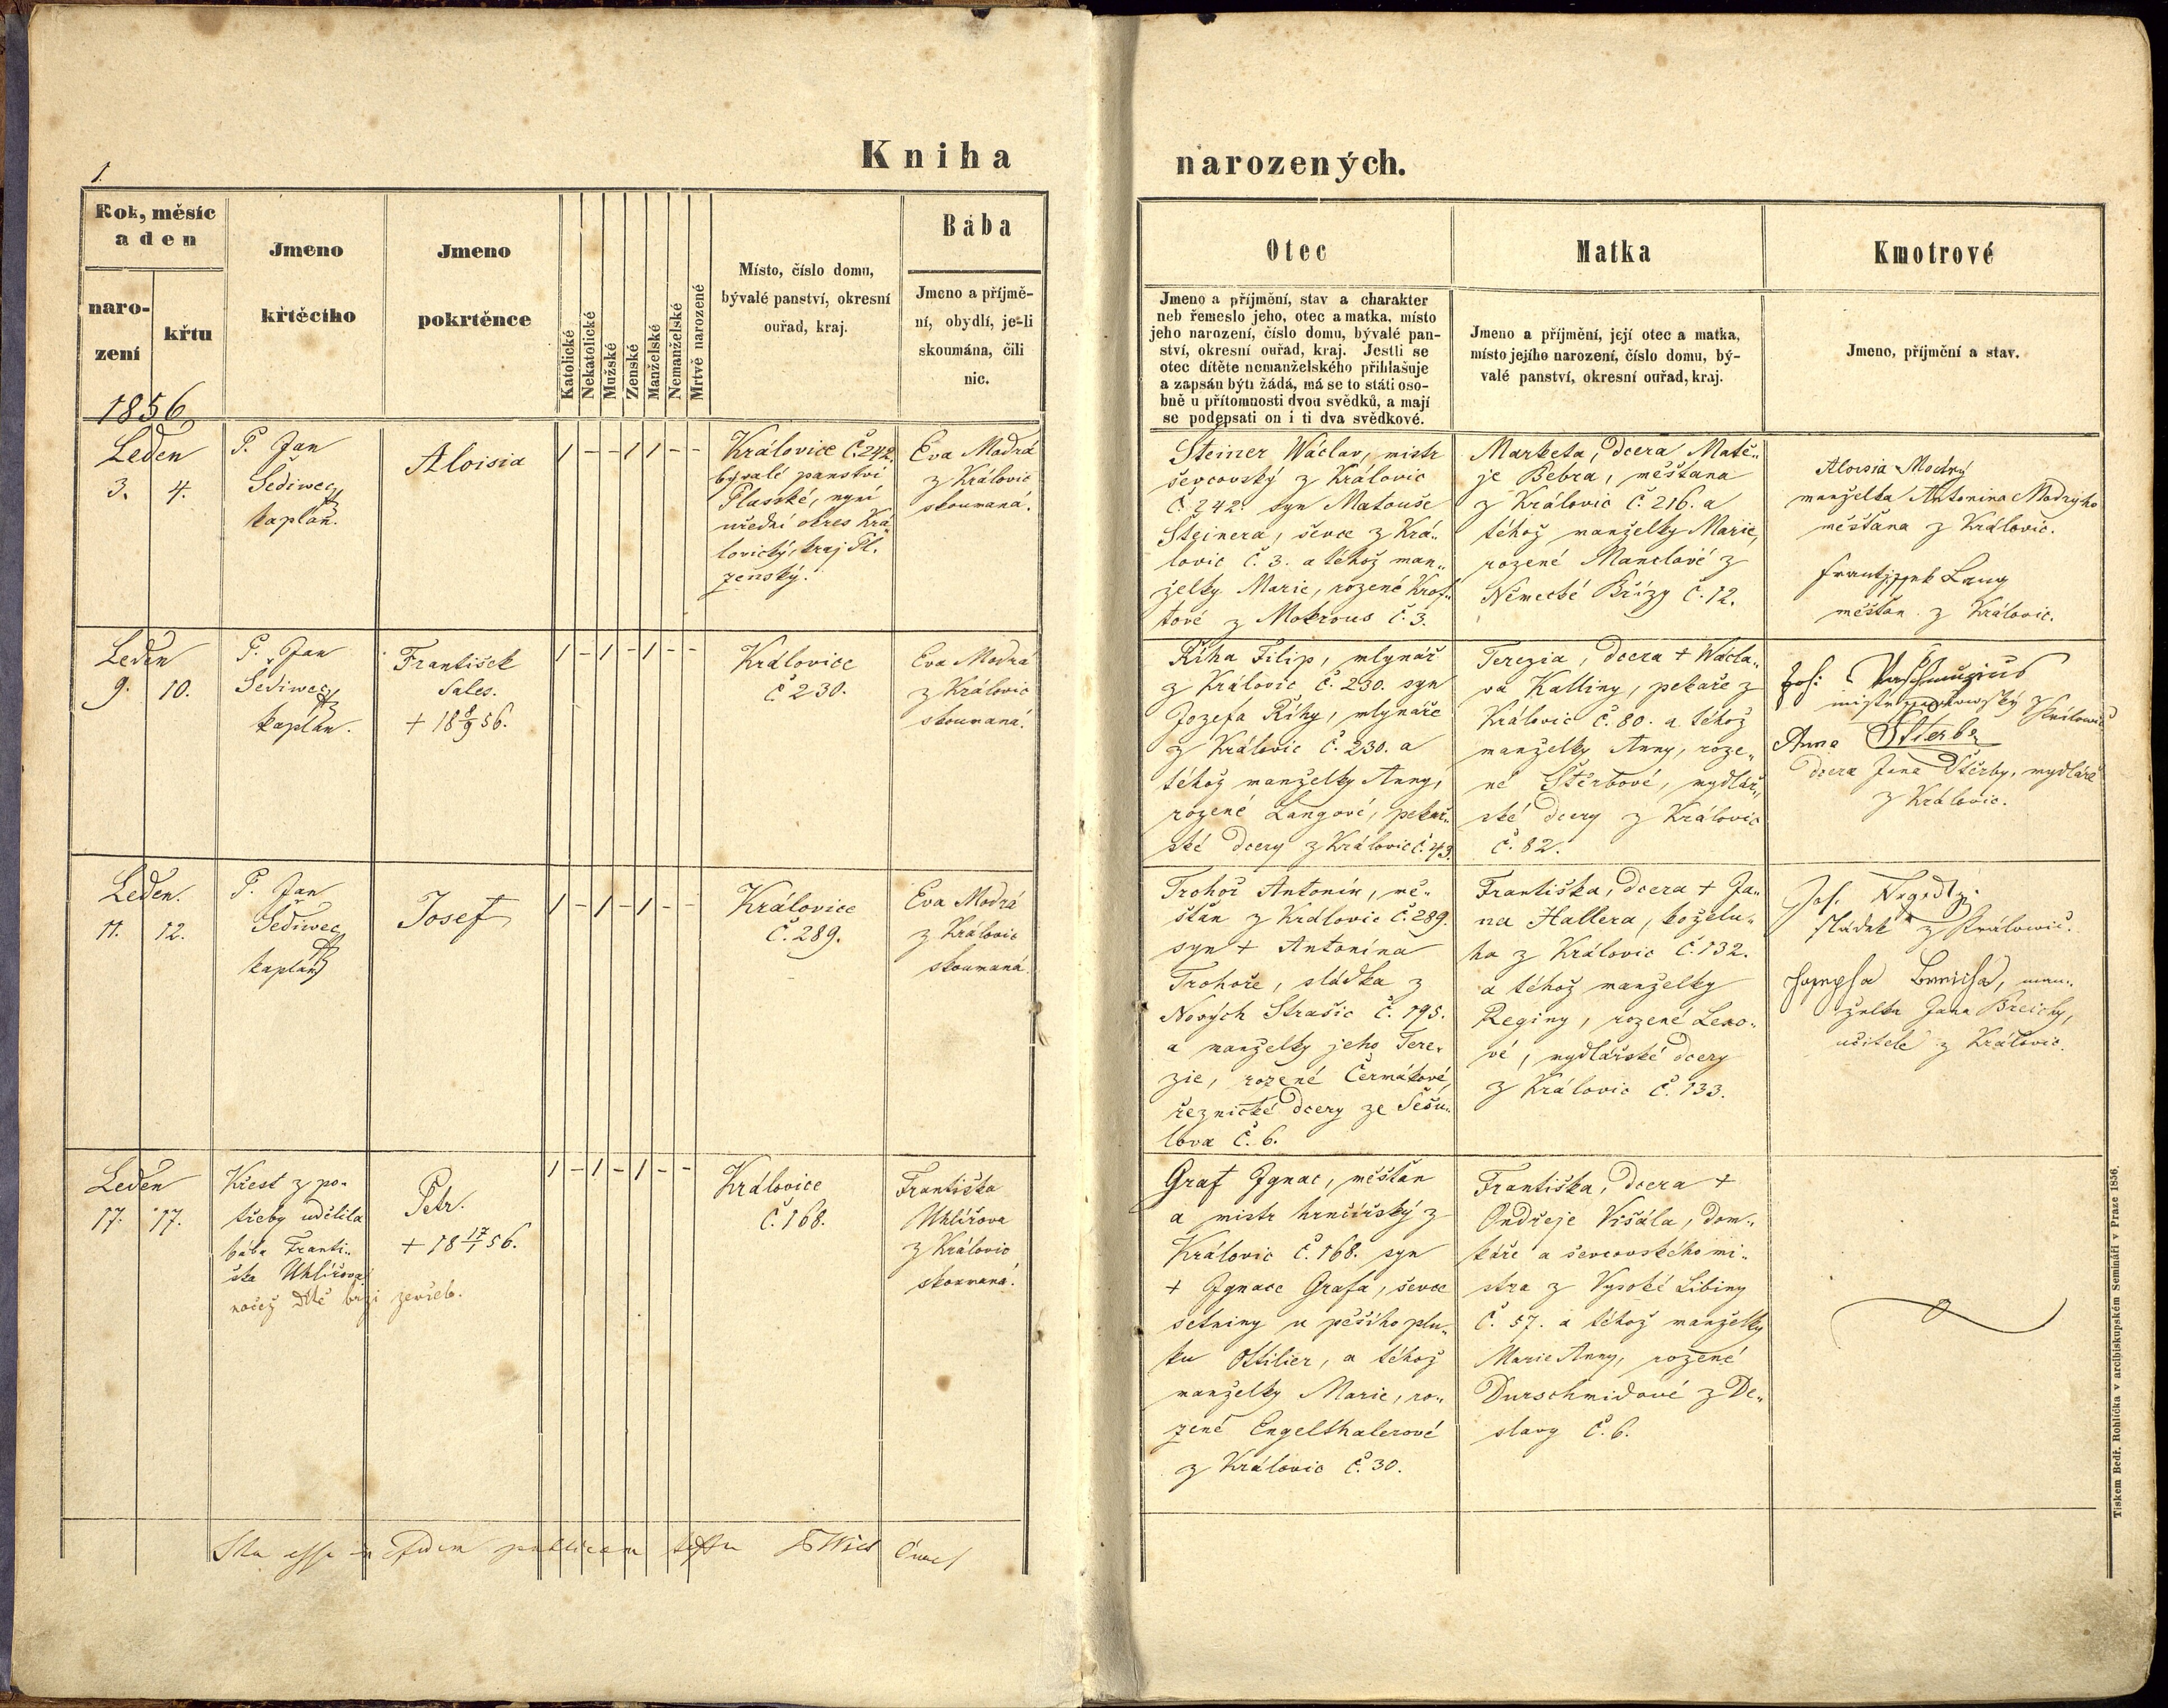 1.
Kniha narozených.
Rok, měsíc
a den
naro-
zení
křtu
Jmeno
křtěcího
Jmeno
pokrtěnce
Katolické
Nekatolické
Mužské
Ženské
Manželské
Nemanželské
Mrtvě narozené
Místo, číslo domu,
bývalé panství, okresní
ouřad, kraj.
Bába
Jmeno a příjmě-
ní, obydlí, je-li
skoumána, čili
nic.
Otec
Jmeno a příjmění, stav a charakter
neb řemeslo jeho, otec a matka, místo
jeho narození, číslo domu, bývalé pan-
ství, okresní ouřad, kraj. Jestli se
otec dítěte nemanželského přihlašuje
a zapsán býti žádá, má se to státi oso-
bně u přítomnosti dvou svědků, a mají
se podepsati on i ti dva svědkové.
Matka
Jmeno a příjmění, její otec a matka,
místo jejího narození, číslo domu, bý-
valé panství, okresní ouřad, kraj.
Kmotrové
Jmeno, příjmění a stav.
1856
Leden
3. 4.
P. Jan
Šediwec
kaplan.
Aloisia
1 - - 1 1 - -
Královice č. 242.
bývalé panství
Plasské, nyní
uřední okres Krá-
lovický, kraj Pl-
zenský.
Eva Modrá
z Královic
skoumaná.
Steiner Wáclav, mistr
ševcovský z Královic
č. 242. syn Matouše
Šteinera, ševce z Krá-
lovic č. 3. a téhož man-
želky Marie, rozené Krof-
tové z Mokrous č. 3.
Marketa, dcera Matě-
je Bebra, měšťana
z Královic č. 216. a
téhož manželky Marie,
rozené Manclové z
Německé Břízy č. 12.
Aloisia Modrý
manželka Antonina Modrýho
měšťana z Královic.
Lang
měšťan z Královic.
Leden
9. 10.
P. Jan
Šediwec
kaplan.
František
Sales.
+ 18 8/9 56.
1 - 1 - 1 - -
Královice
č 230.
Eva Modrá
z Královic
skoumaná.
Říha Filip, mlynář
z Královic č. 230. syn
Jozefa Říhy, mlynáře
z Královic č. 230. a
téhož manželky Anny,
rozené Langové, pekař-
ské dcery z Královic č. 43.
Terezia, dcera + Wácla-
va Kalliny, pekaře z
Královic č. 80. a téhož
manželky Anny, roze-
né Štěrbové, mydlář-
ské dcery z Královic
č. 82.
Jos:
mistr
Anna Stierba
dcera Jana Štěrby, mydláře
z Královic.
Leden.
11. 12.
P. Jan
Šediwec
kaplan
Josef
1 - 1 - 1 - -
Královice
č. 289.
Eva Modrá
z Královic
skoumaná.
Trohoř Antonín, mě-
šťan z Královic č. 289.
syn + Antonína
Trohoře, sládka z
Nových Strašic č. 195.
a manželky jeho Tere-
zie, rozené Čermákové,
řeznické dcery ze Sešu-
lova č. 6.
Františka, dcera + Ja-
na Hallera, koželu-
ha z Královic č. 132.
a téhož manželky
Reginy, rozené Lexo-
vé, mydlářské dcery
z Královic č. 133.
Jos.
sládek z Královic.
man-
želka Jana Breichy,
učitele z Královic.
Leden
17. 17.
Křest z po-
třeby udělila
bába Franti-
ška Uhlířova
načež dítě brzi zemřelo.
Petr.
+ 18 17/1 56.
1 - 1 - 1 - -
Královice
č. 168.
Františka
Uhlířova
z Královic
skoumaná.
Graf Ignac, měšťan
a mistr hrnčířský z
Královic č. 168. syn
+ Ignace Grafa, ševce
setniny u pěšího plu-
ku Ottilier, a téhož
manželky Marie, ro-
zené Engelthalerové
z Královic č. 30.
Františka, dcera +
Ondřeje Višála, dom-
káře a ševcovského mi-
stra z Vysoké Libiny
č. 57. a téhož manželky
Marie Anny, rozené
Durschmidové z De-
slavy č. 6.
Ita esse in fidem publicam testor
Tiskem Bedř. Rohlíčka v arcibiskupském Semináři v Praze 1856.